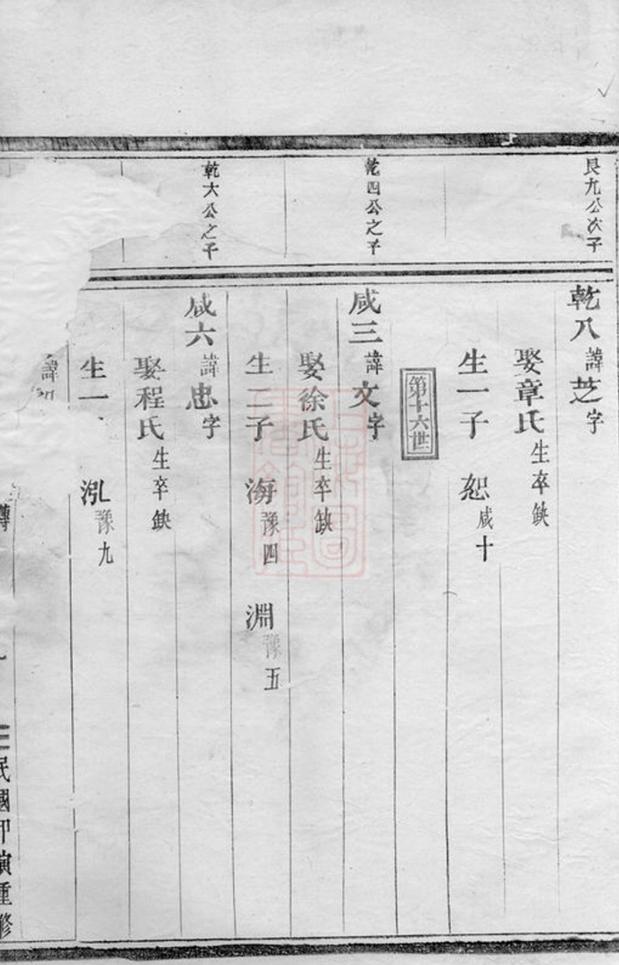 艮九公次子
乾八諱芝字
娶章氏生卒缺
生一子 恕咸十
第十六世
乾四公之子
咸三諱文字
娶徐氏生卒缺
生二子 海豫四 淵豫五
乾大公之子
咸六諱忠字
娶程氏生卒缺
生一 泓豫九
諱
民國
重修